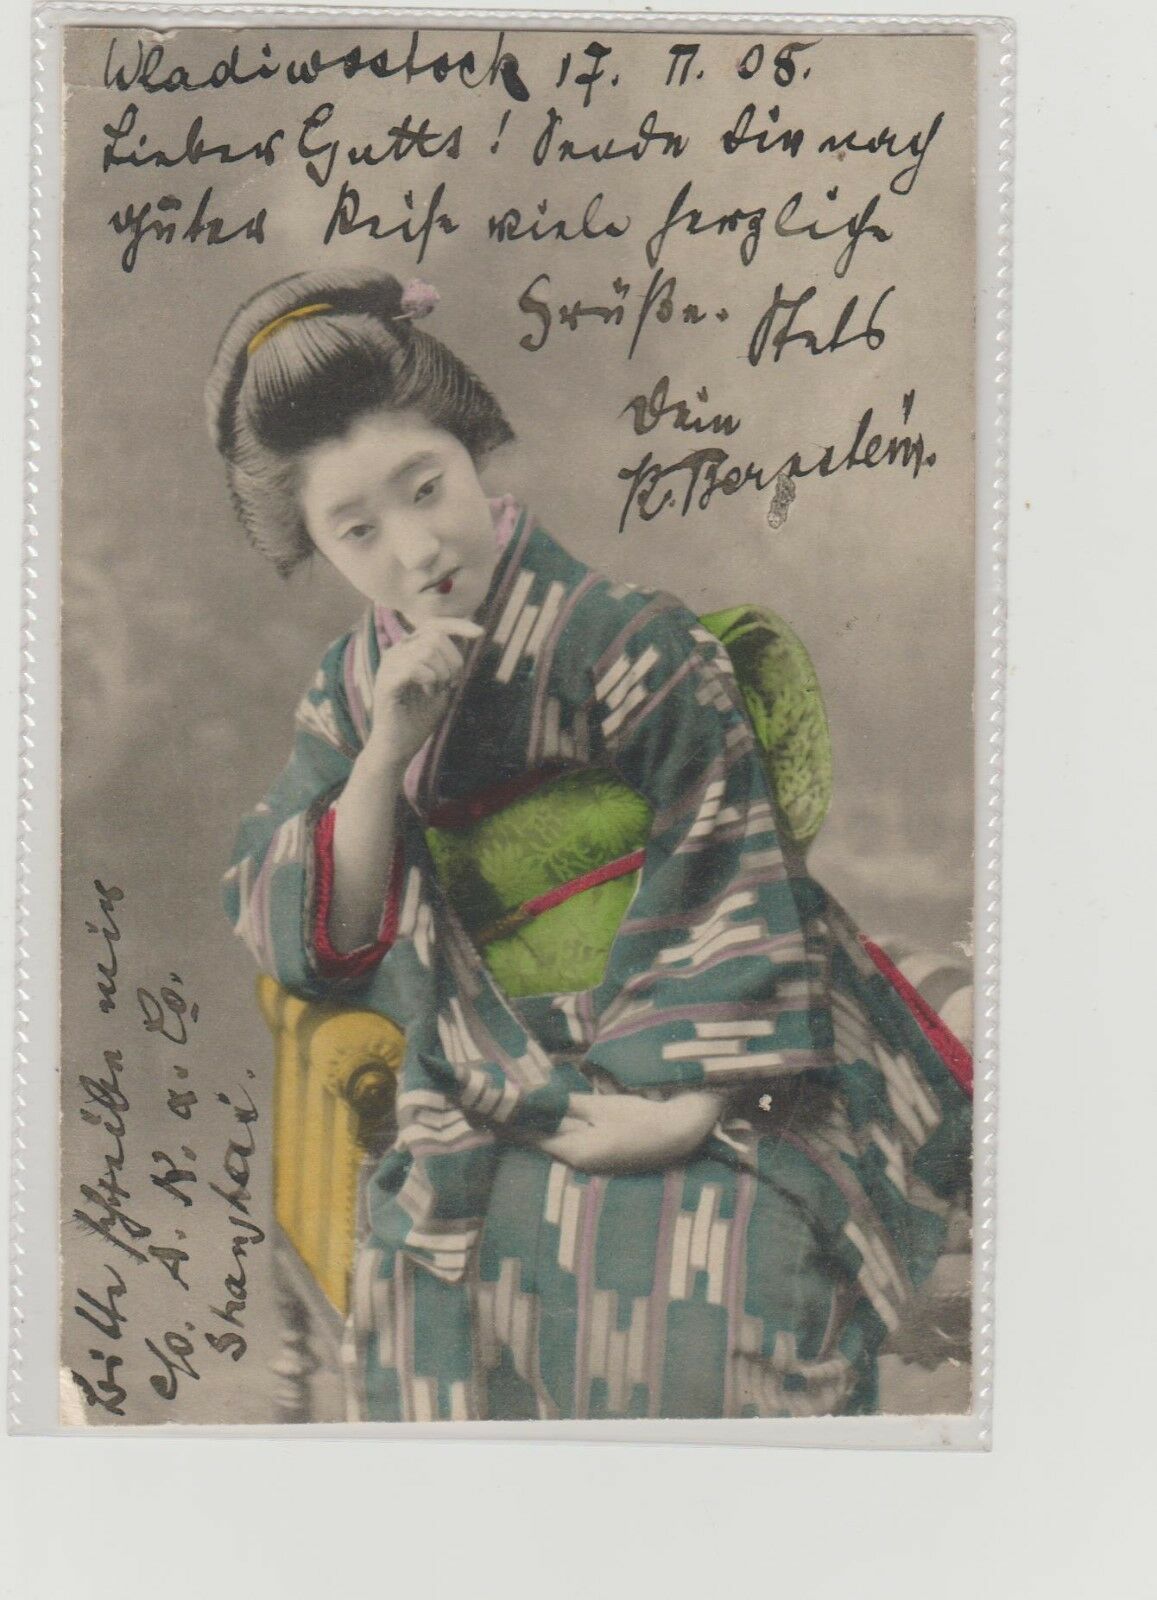 Wladiwostock 17. II. 05.
Lieber Gutts! Sende Dir nach
guter Reise viele herzliche
Grüße. Stets
Dein
R. Bernstein.
Bitte schreibe mir
c/o. A. K. a. Co.
Shanghai.